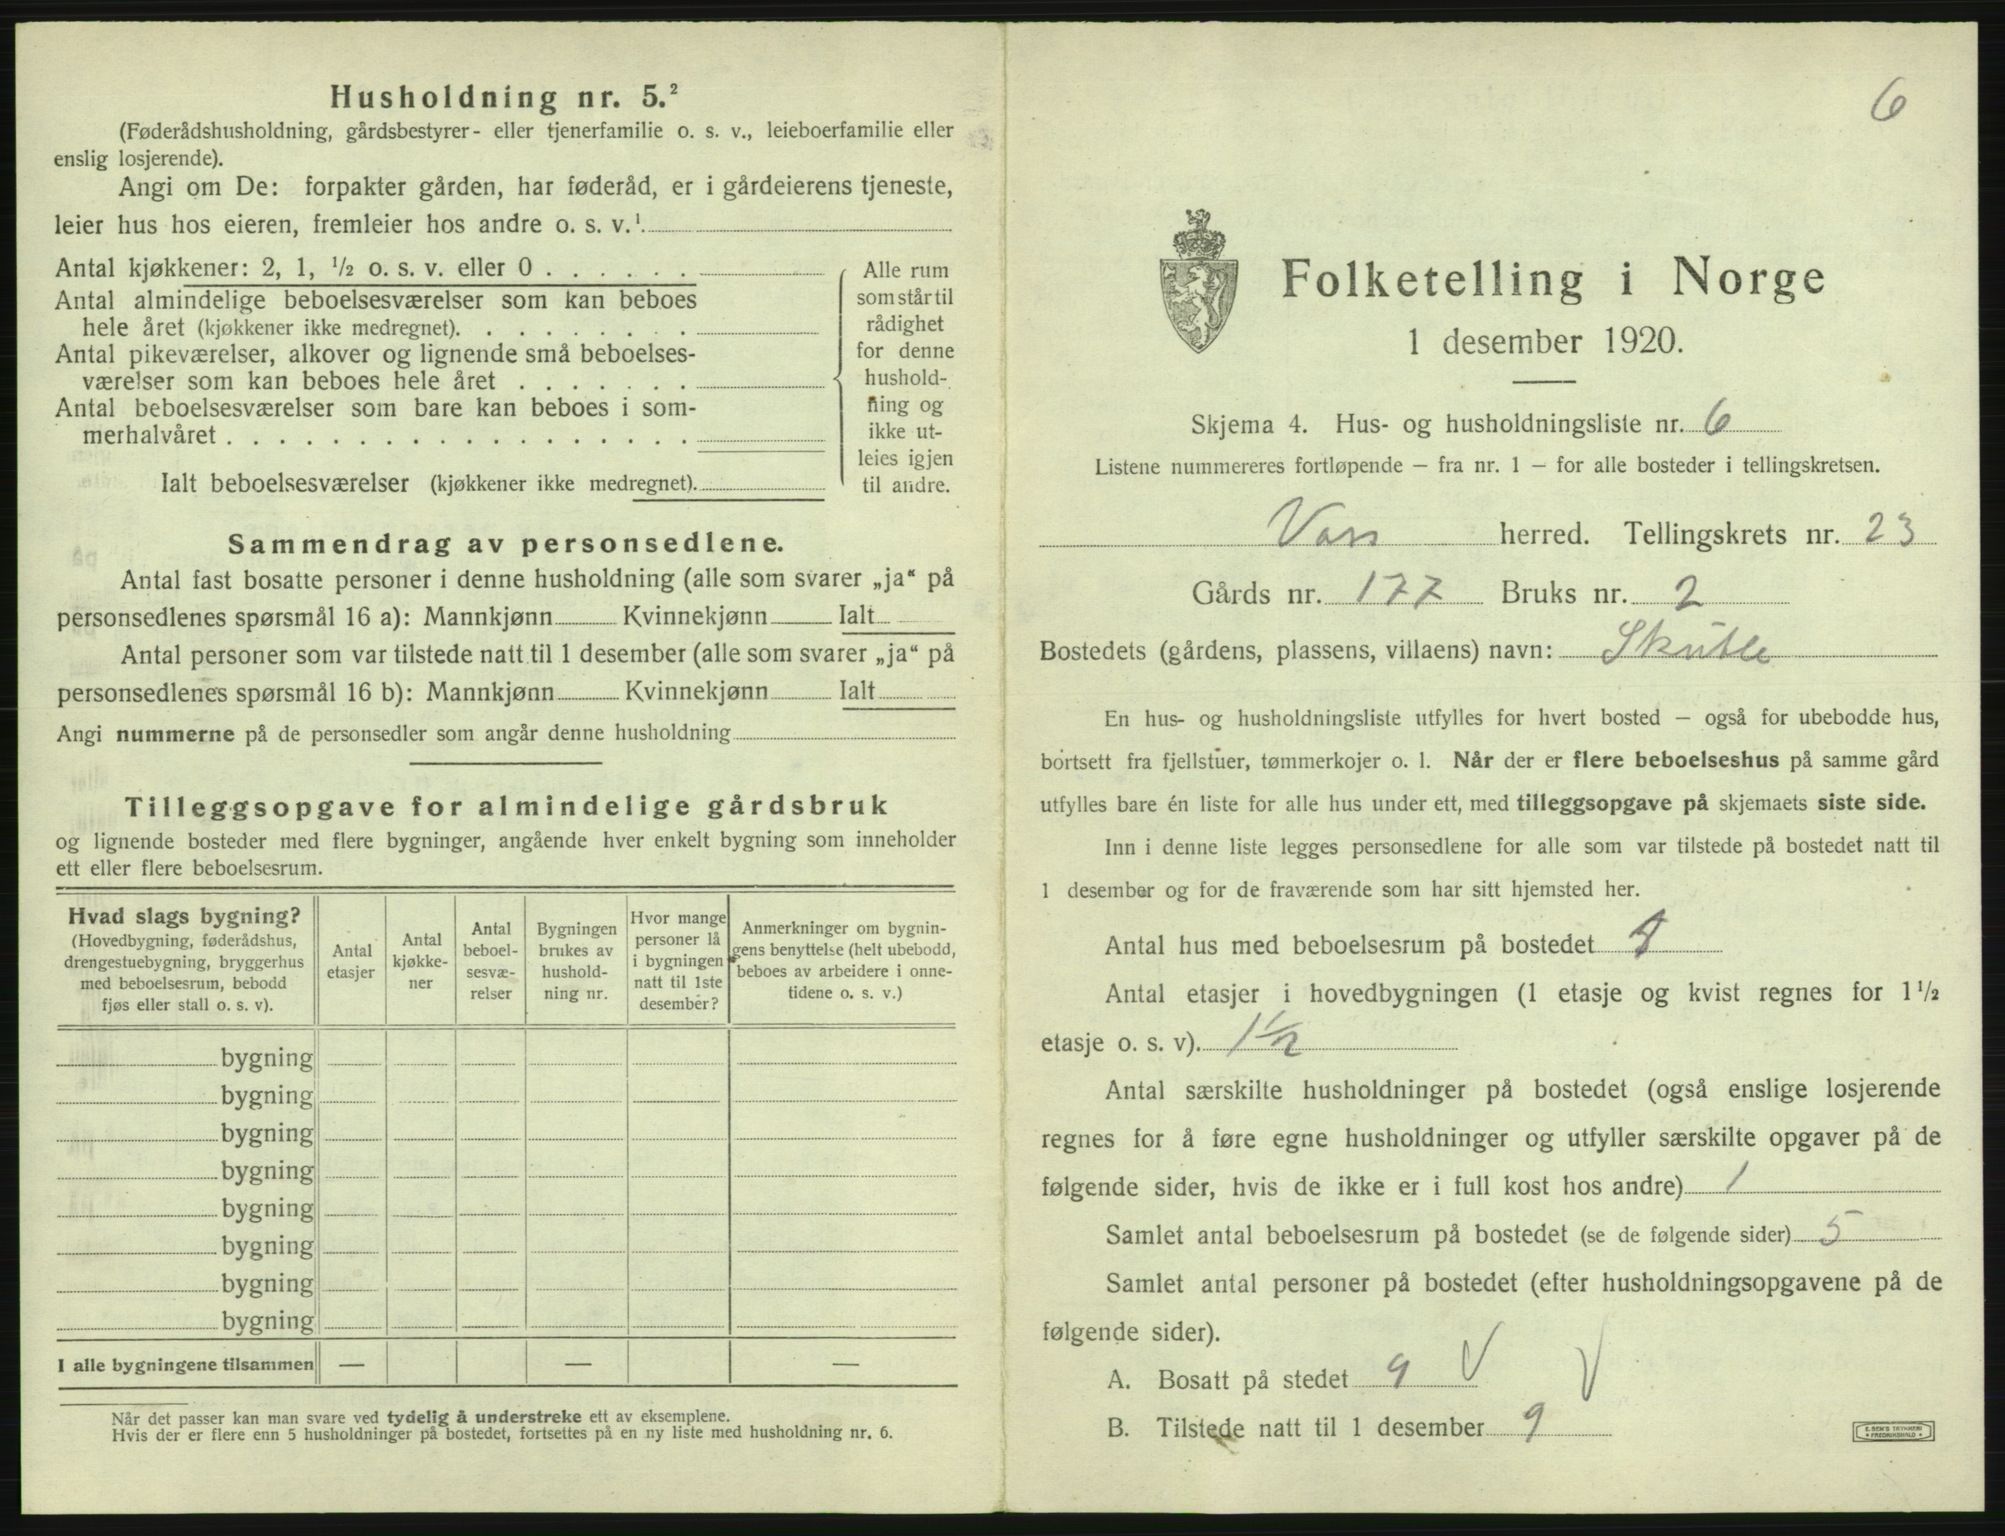 Husholdning nr. 5.²
(Føderådshusholdning, gårdsbestyrer- eller tjenerfamilie o. s. v., leieboerfamilie eller
enslig losjerende).
Angi om De: forpakter gården, har føderåd, er i gårdeierens tjeneste,
leier hus hos eieren, fremleier hos andre o. s. v.¹.
Antal kjøkkener: 2, 1, ½ o. s. v. eller 0 . . . . . .
Antal almindelige beboelsesværelser som kan beboes
hele året (kjøkkener ikke medregnet). . . . . . . . .
Antal pikeværelser, alkover og lignende små beboelses-
værelser som kan beboes hele året . . . . . . .
Antal beboelsesværelser som bare kan beboes i som-
merhalvåret . . . . . . . . . . . . . . . . . .
Ialt beboelsesværelser (kjøkkener ikke medregnet).
Alle rum
som står til
rådighet
for denne
hushold-
ning og
ikke ut-
leies igjen
til andre.
Sammendrag av personsedlene.
Antal fast bosatte personer i denne husholdning (alle som svarer „ja“ på
personsedlenes spørsmål 16 a): Mannkjønn Kvinnekjønn Ialt
Antal personer som var tilstede natt til 1 desember (alle som svarer „ja“ på
personsedlenes spørsmål 16 b): Mannkjønn Kvinnekjønn Ialt
Angi nummerne på de personsedler som angår denne husholdning
Tilleggsopgave for almindelige gårdsbruk
og lignende bosteder med flere bygninger, angående hver enkelt bygning som inneholder
ett eller flere beboelsesrum.
Hvad slags bygning?
(Hovedbygning, føderådshus,
drengestuebygning, bryggerhus
med beboelsesrum, bebodd
fjøs eller stall o. s. v).
Antal
etasjer
Antal
kjøkke-
ner
Antal
beboel-
sesvæ-
relser
Bygningen
brukes av
hushold-
ning nr.
Hvor mange
personer lå
i bygningen
natt til 1ste
desember?
Anmerkninger om bygnin-
gens benyttelse (helt ubebodd,
beboes av arbeidere i onne-
tidene o. s. v.)
bygning
bygning
bygning
bygning
bygning
bygning
bygning
bygning
I alle bygningene tilsammen — — —
Når det passer kan man svare ved tydelig å understreke ett av eksemplene.
Hvis der er flere enn 5 husholdninger på bostedet, fortsettes på en ny liste med husholdning nr. 6.
6
Folketelling i Norge
1 desember 1920.
Skjema 4. Hus- og husholdningsliste nr. 6
Listene nummereres fortløpende – fra nr. 1 – for alle bosteder i tellingskretsen.
Voss herred. Tellingskrets nr. 23
Gårds nr. 177 Bruks nr. 2
Bostedets (gårdens, plassens, villaens) navn: Skutle
En hus- og husholdningsliste utfylles for hvert bosted – også for ubebodde hus,
bortsett fra fjellstuer, tømmerkojer o. l. Når der er flere beboelseshus på samme gård
utfylles bare én liste for alle hus under ett, med tilleggsopgave på skjemaets siste side.
Inn i denne liste legges personsedlene for alle som var tilstede på bostedet natt til
1 desember og for de fraværende som har sitt hjemsted her.
Antal hus med beboelsesrum på bostedet
Antal etasjer i hovedbygningen (1 etasje og kvist regnes for 1½
etasje o. s. v). 1½
Antal særskilte husholdninger på bostedet (også enslige losjerende
regnes for å føre egne husholdninger og utfyller særskilte opgaver på de
følgende sider, hvis de ikke er i full kost hos andre) 1
Samlet antal beboelsesrum på bostedet (se de følgende sider) 5
Samlet antal personer på bostedet (efter husholdningsopgavene på de
følgende sider).
A. Bosatt på stedet 9 V V
B. Tilstede natt til 1 desember 9